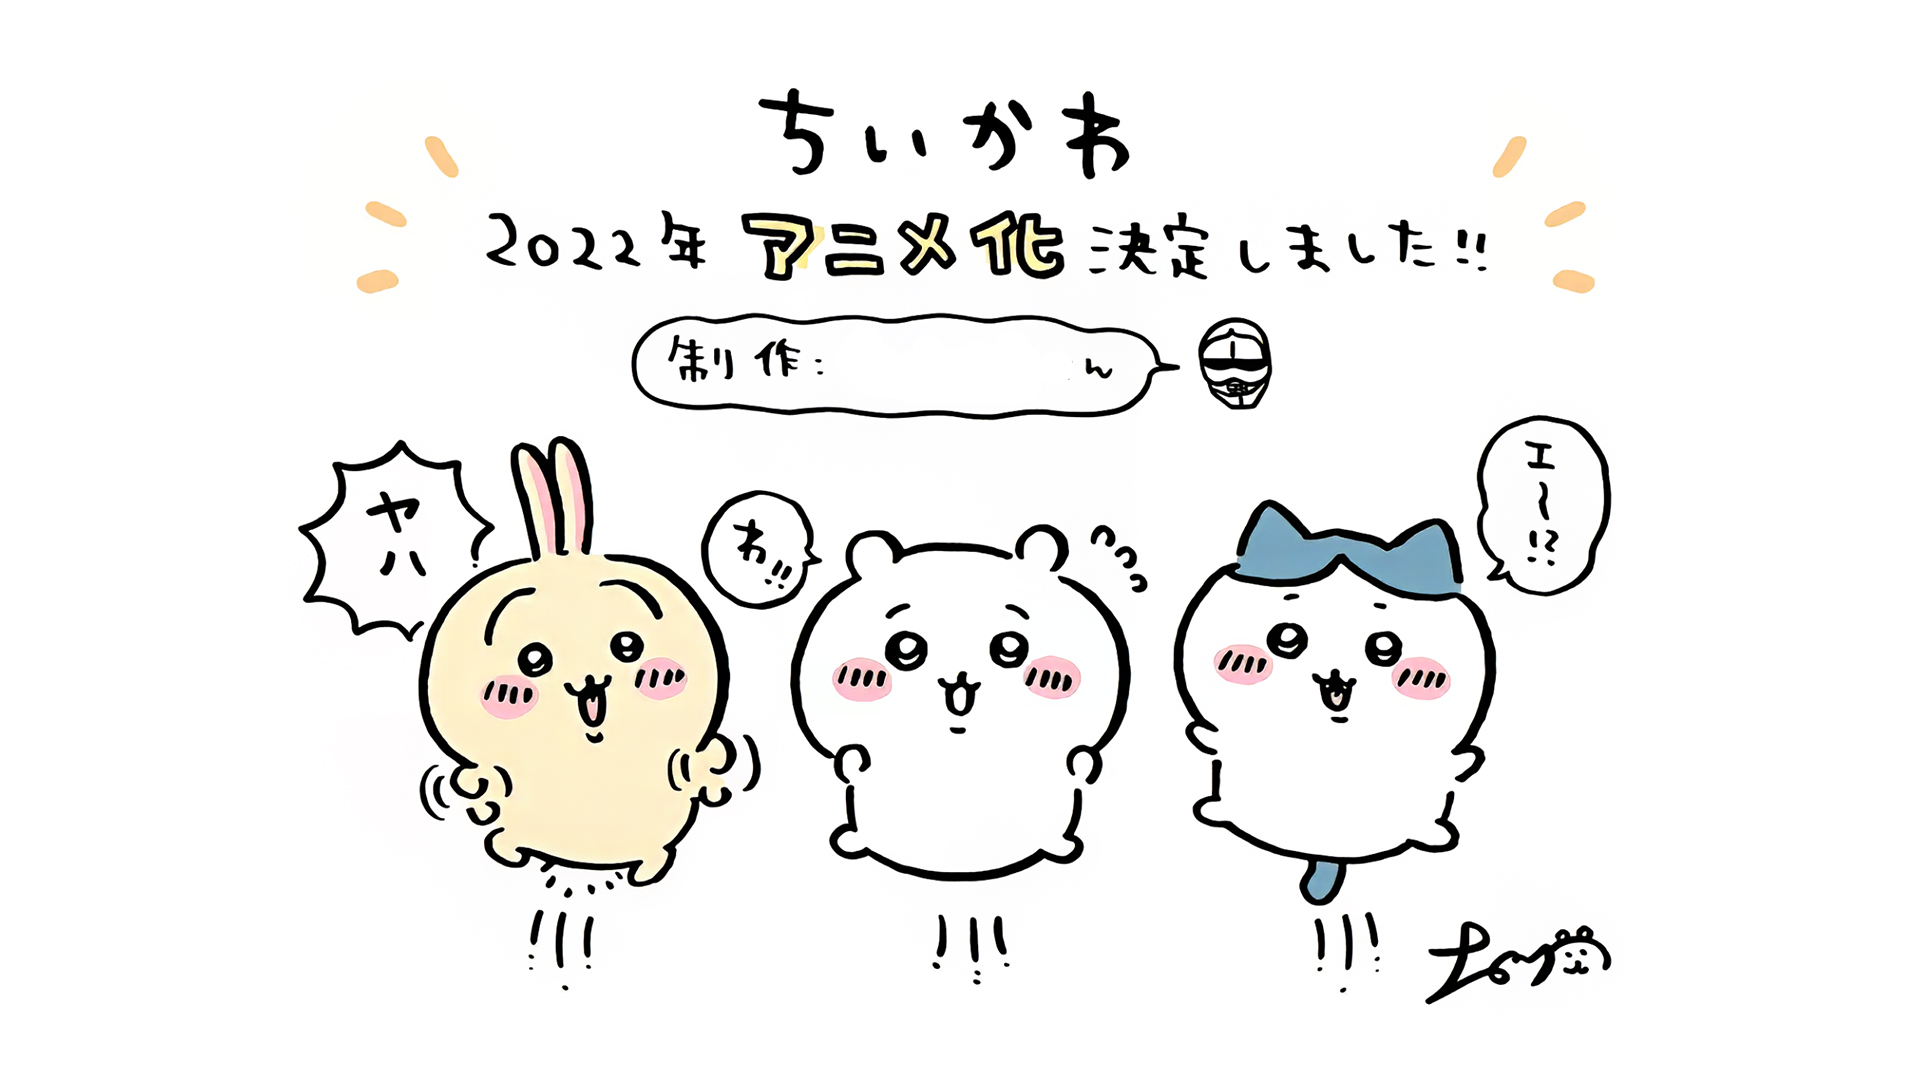 ちいかわ
2022年アニメ化決定しました!!
制作: ん
ヤハ
わ!!
エ〜!?